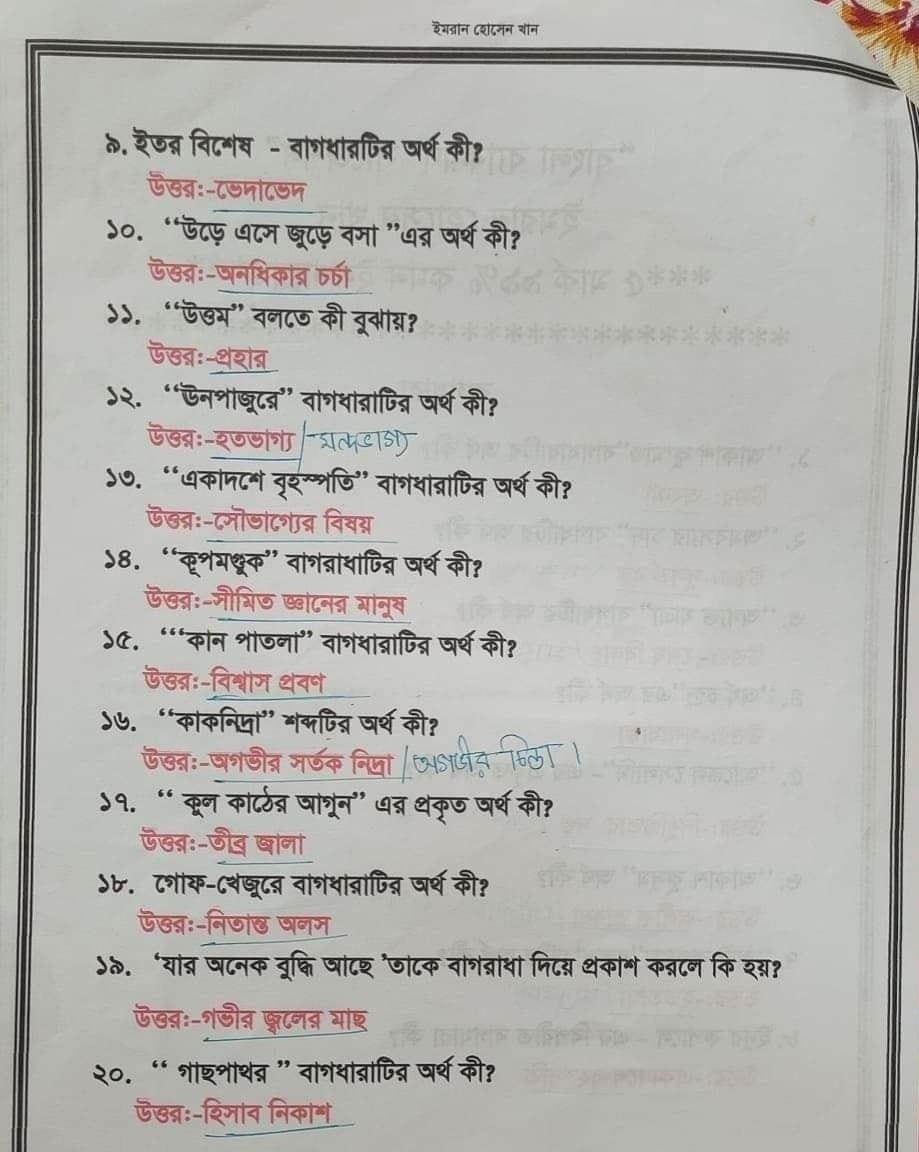 ইমরান হোসেন খান
৯. ইতর বিশেষ - বাগধারাটির অর্থ কী?
উত্তর:-ভেদাভেদ
১০. “উড়ে এসে জুড়ে বসা ”এর অর্থ কী?
উত্তর:-অনধিকার চর্চা
১১. “উত্তম” বলতে কী বুঝায়?
উত্তর:-প্রহার
১২. “উনপাজুরে” বাগধারাটির অর্থ কী?
উত্তর:-হতভাগা /-মন্দভাগ্য
১৩. “একাদশে বৃহস্পতি” বাগধারাটির অর্থ কী?
উত্তর:-সৌভাগ্যের বিষয়
১৪. “কূপমণ্ডুক” বাগরাধাটির অর্থ কী?
উত্তর:-সীমিত জ্ঞানের মানুষ
১৫. “‘কান পাতলা” বাগধারাটির অর্থ কী?
উত্তর:-বিশ্বাস প্রবণ
১৬. “কাকনিদ্রা” শব্দটির অর্থ কী?
উত্তর:-অগভীর সর্তক নিদ্রা /অগভীর
১৭. “ কুল কাঠের আগুন” এর প্রকৃত অর্থ কী?
উত্তর:-তীব্র জ্বালা
১৮. গোফ-খেজুরে বাগধারাটির অর্থ কী?
উত্তর:-নিতান্ত অলস
১৯. ‘যার অনেক বুদ্ধি আছে ’তাকে বাগরাধা দিয়ে প্রকাশ করলে কি হয়?
উত্তর:-গভীর জলের মাছ
২০. “ গাছপাথর ” বাগধারাটির অর্থ কী?
উত্তর:-হিসাব নিকাশ